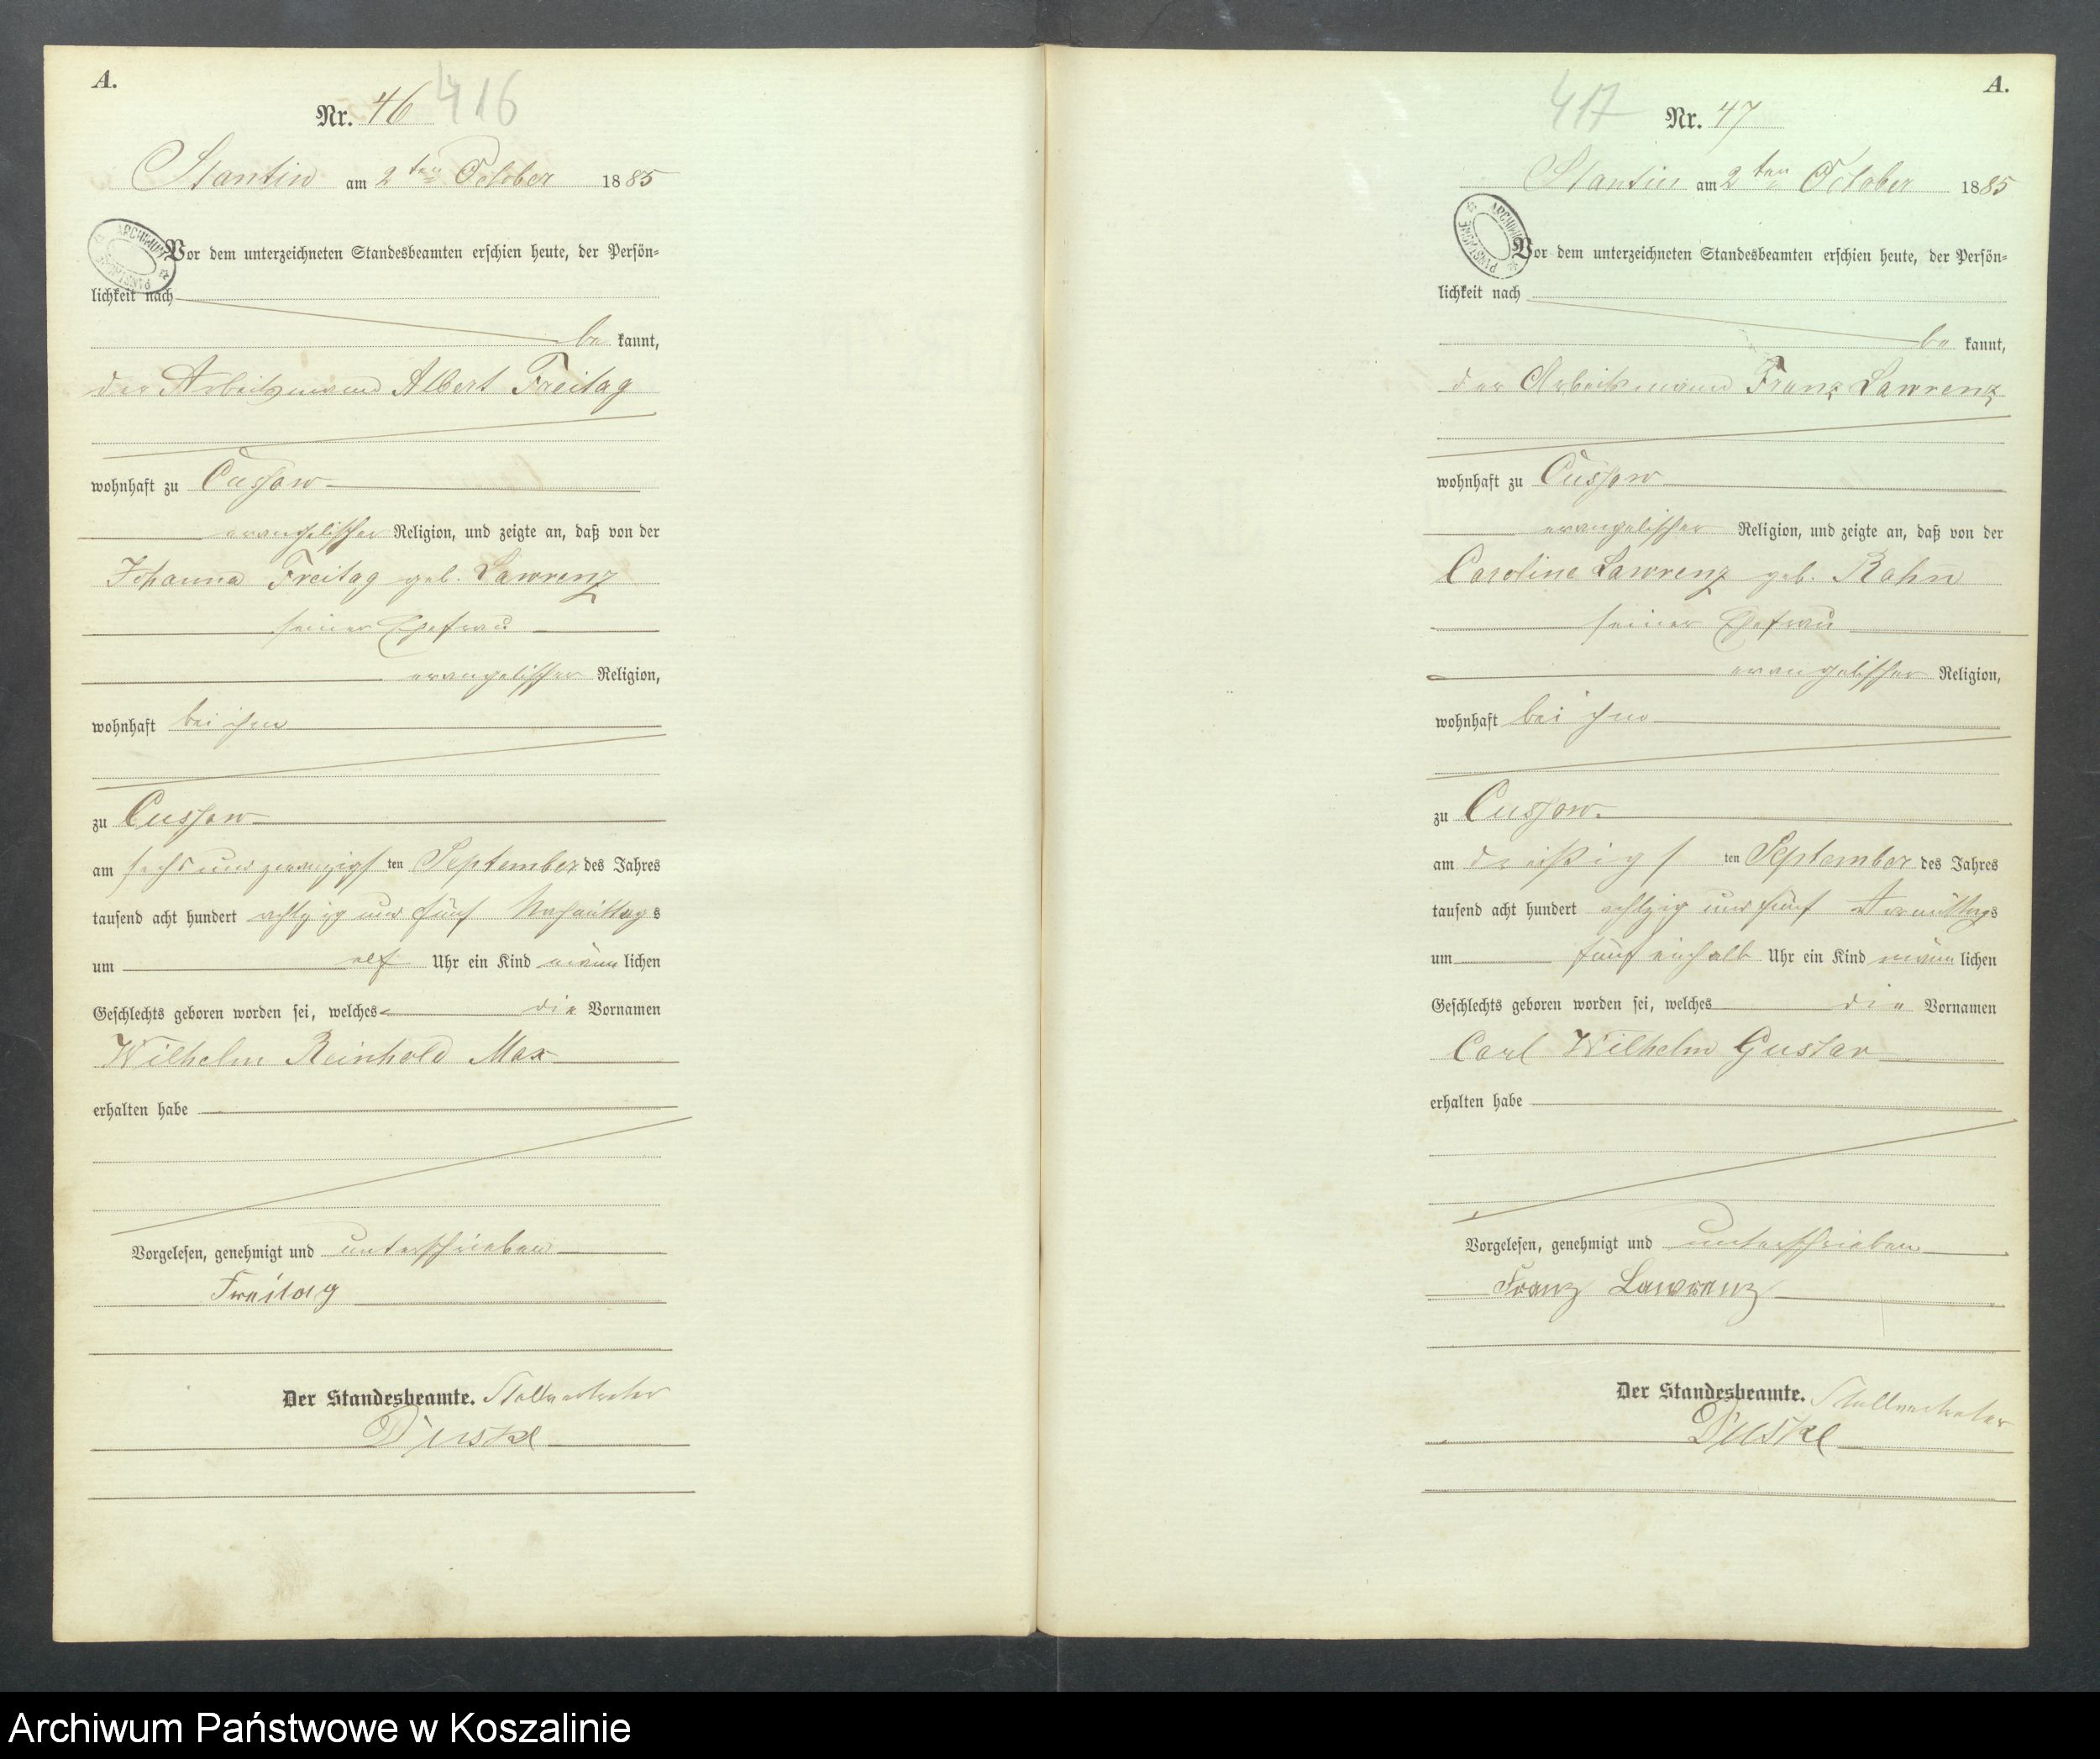 A.
Nr. 46 416
Stantin am 2ten October 1885
ARCHIWUM PAŃSTWOWE
Vor dem unterzeichneten Standesbeamten erschien heute, der Persön=
lichkeit nach
be kannt,
der Arbeitsmann Albert Freitag
wohnhaft zu Cussow
evangelischer Religion, und zeigte an, daß von der
Johanna Freitag geb. Lawrenz
seiner Ehefrau
evangelischer Religion,
wohnhaft bei ihm
zu Cussow
am sechs und zwanzigsten September des Jahres
tausend acht hundert achtzig und fünf Nachmittags
um elf Uhr ein Kind männlichen
Geschlechts geboren worden sei, welches die Vornamen
Wilhelm Reinhold Max
erhalten habe
Vorgelesen, genehmigt und unterschrieben
Freitag
Der Standesbeamte. Stellvertreter
A.
417 Nr. 47
Stantin am 2ten October 1885
ARCHIWUM PAŃSTWOWE
Vor dem unterzeichneten Standesbeamten erschien heute, der Persön=
lichkeit nach
be kannt,
der Arbeitsmann Franz Lawrenz
wohnhaft zu Cussow
evangelischer Religion, und zeigte an, daß von der
Caroline Lawrenz geb. Rahn
seiner Ehefrau
evangelischer Religion,
wohnhaft bei ihm
zu Cussow.
am dreißigsten September des Jahres
tausend acht hundert achtzig und fünf Vormittags
um fünf einhalb Uhr ein Kind männlichen
Geschlechts geboren worden sei, welches die Vornamen
Carl Wilhelm Gustav
erhalten habe
Vorgelesen, genehmigt und unterschrieben
Franz Lawrenz
Der Standesbeamte. Stellvertreter
Archiwum Państwowe w Koszalinie